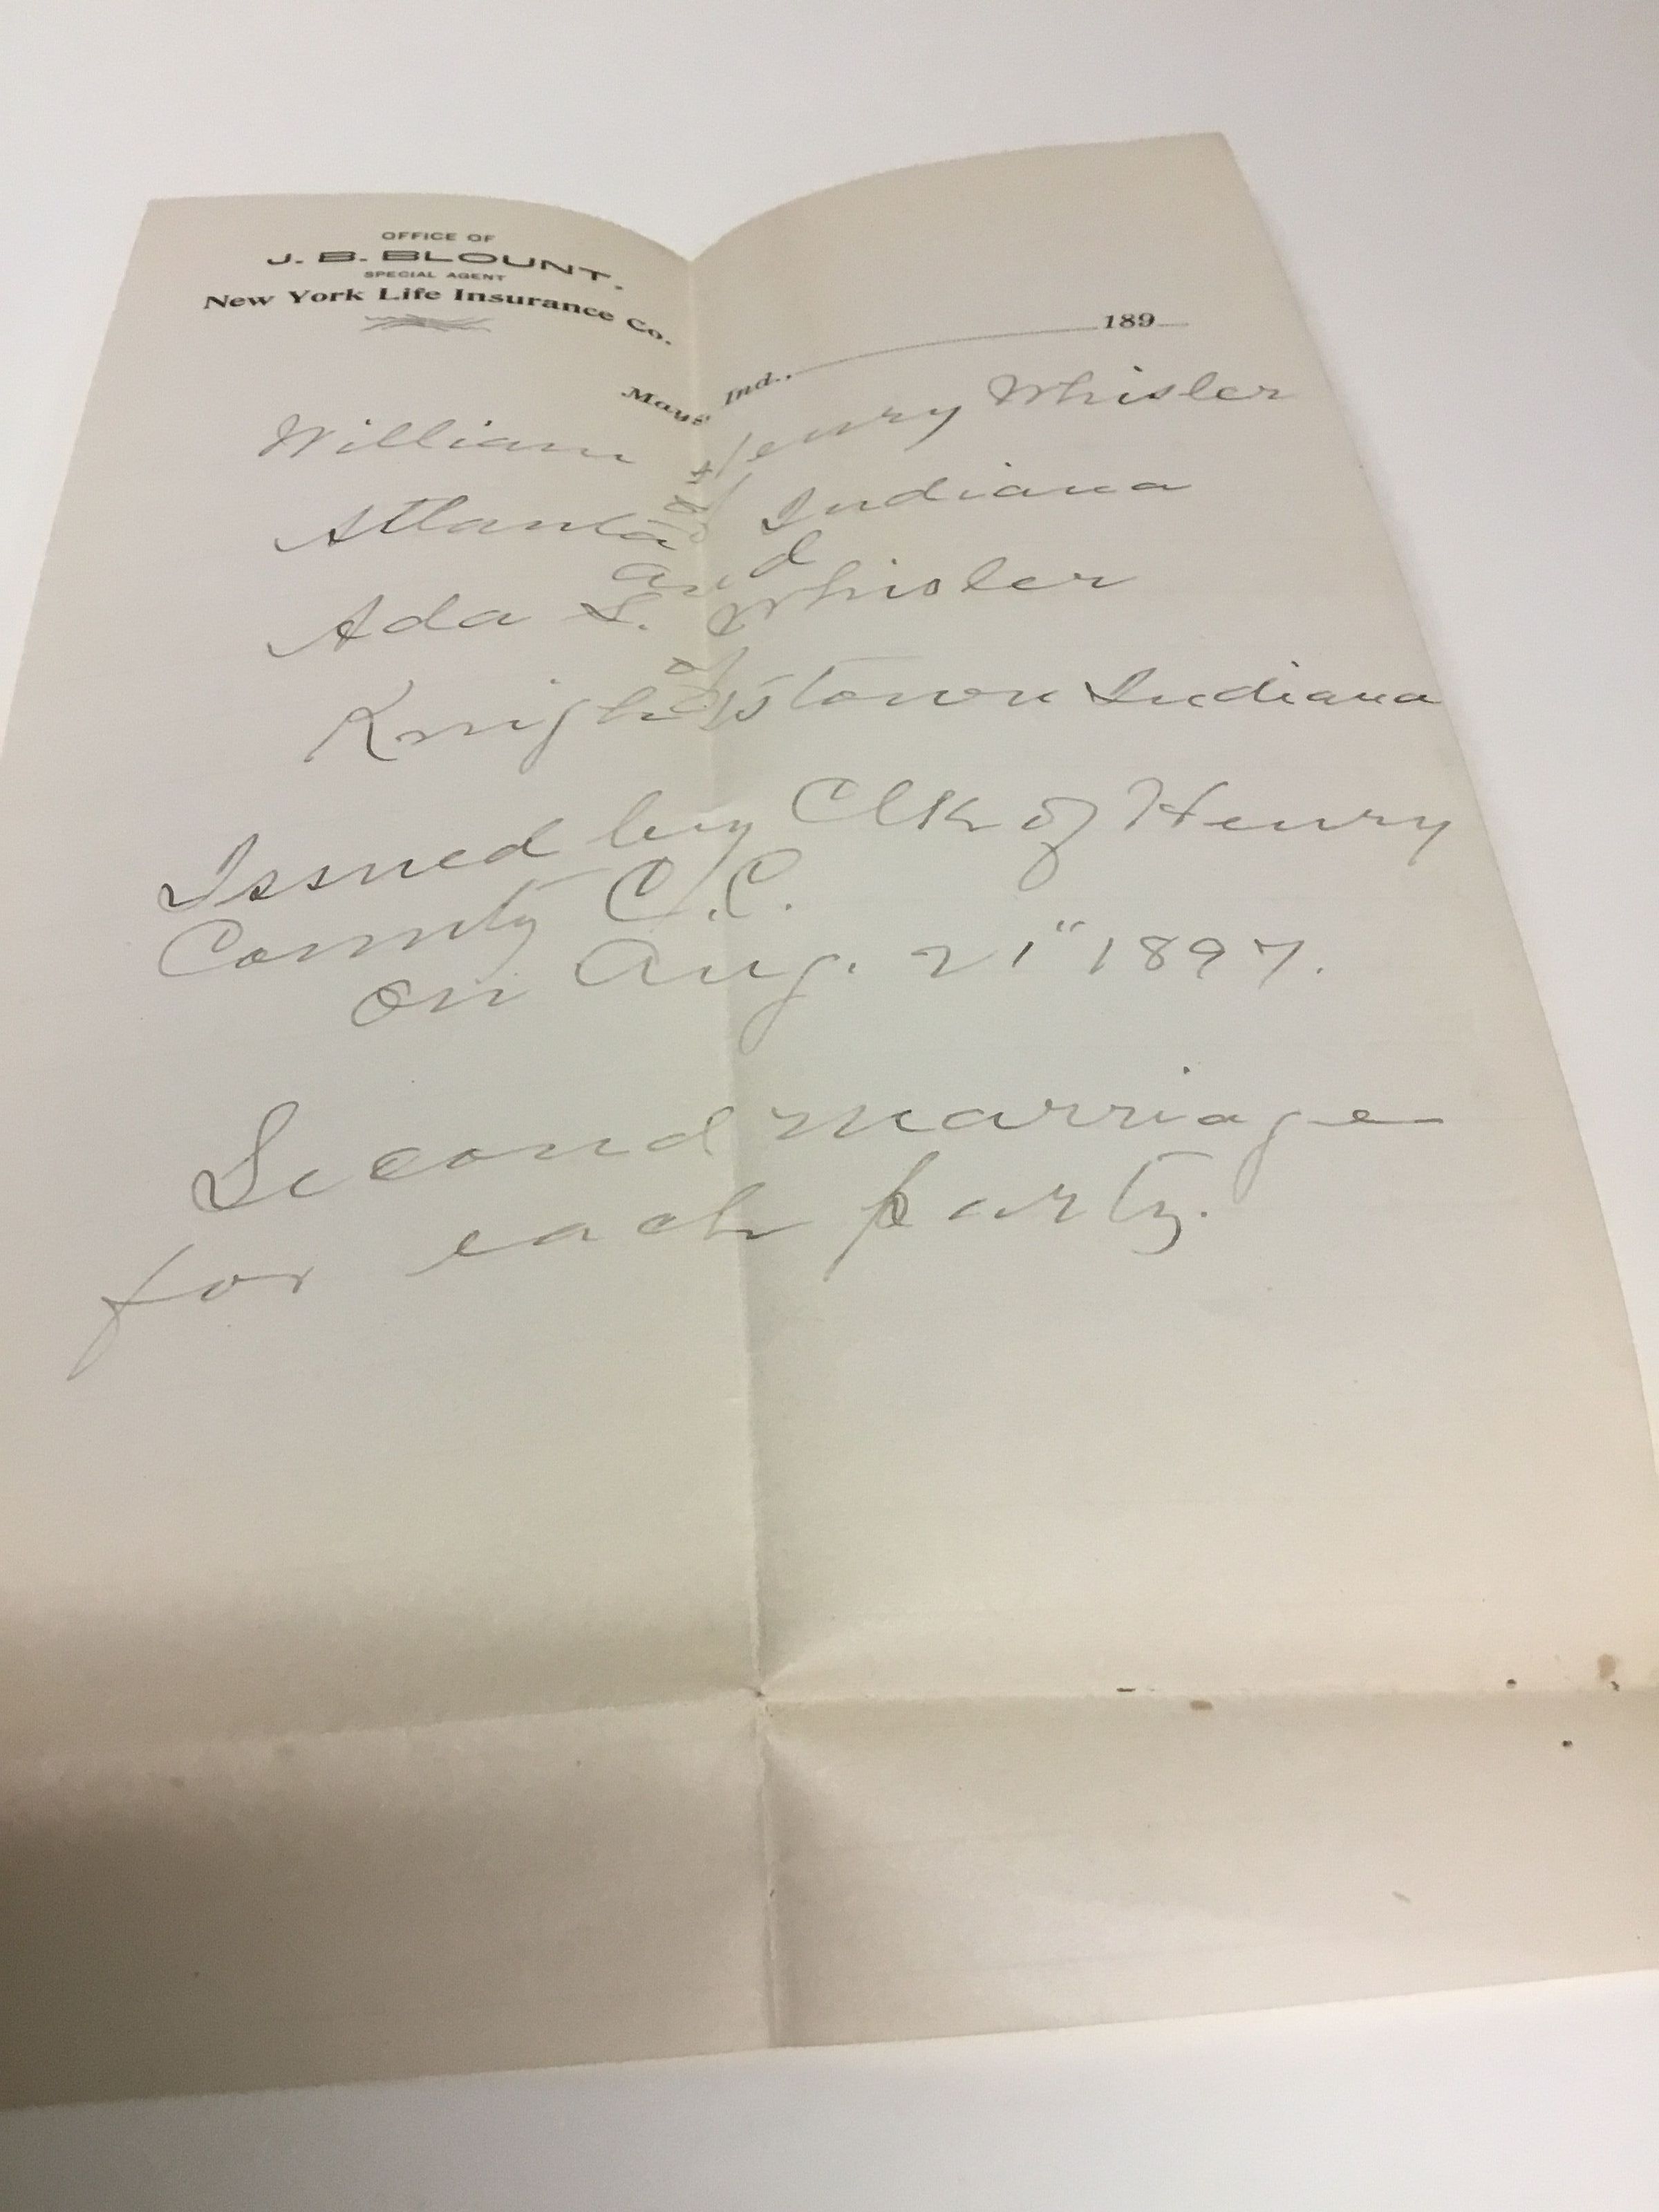 OFFICE OF
J. B. BLOUNT.
SPECIAL AGENT
New York Life Insurance Co.
Mays Ind., 189
William Henry Whisler
of
Atlanta Indiana
and
Ada S. Whisler
of
Knightstown Indiana
Issued by Clk of Henry
County C.C.
on Aug. 21" 1897.
Second marriage
for each party.